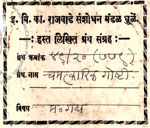 इ. वि. का. राजवाडे संशोधन मंडळ धुळें.
हस्त लिखित ग्रंथ संग्रह
ग्रंथ क्रमांक ४८/२० (७७८)
ग्रंथ नाम चमत्कारिक गोष्टी
विषय म. गद्य